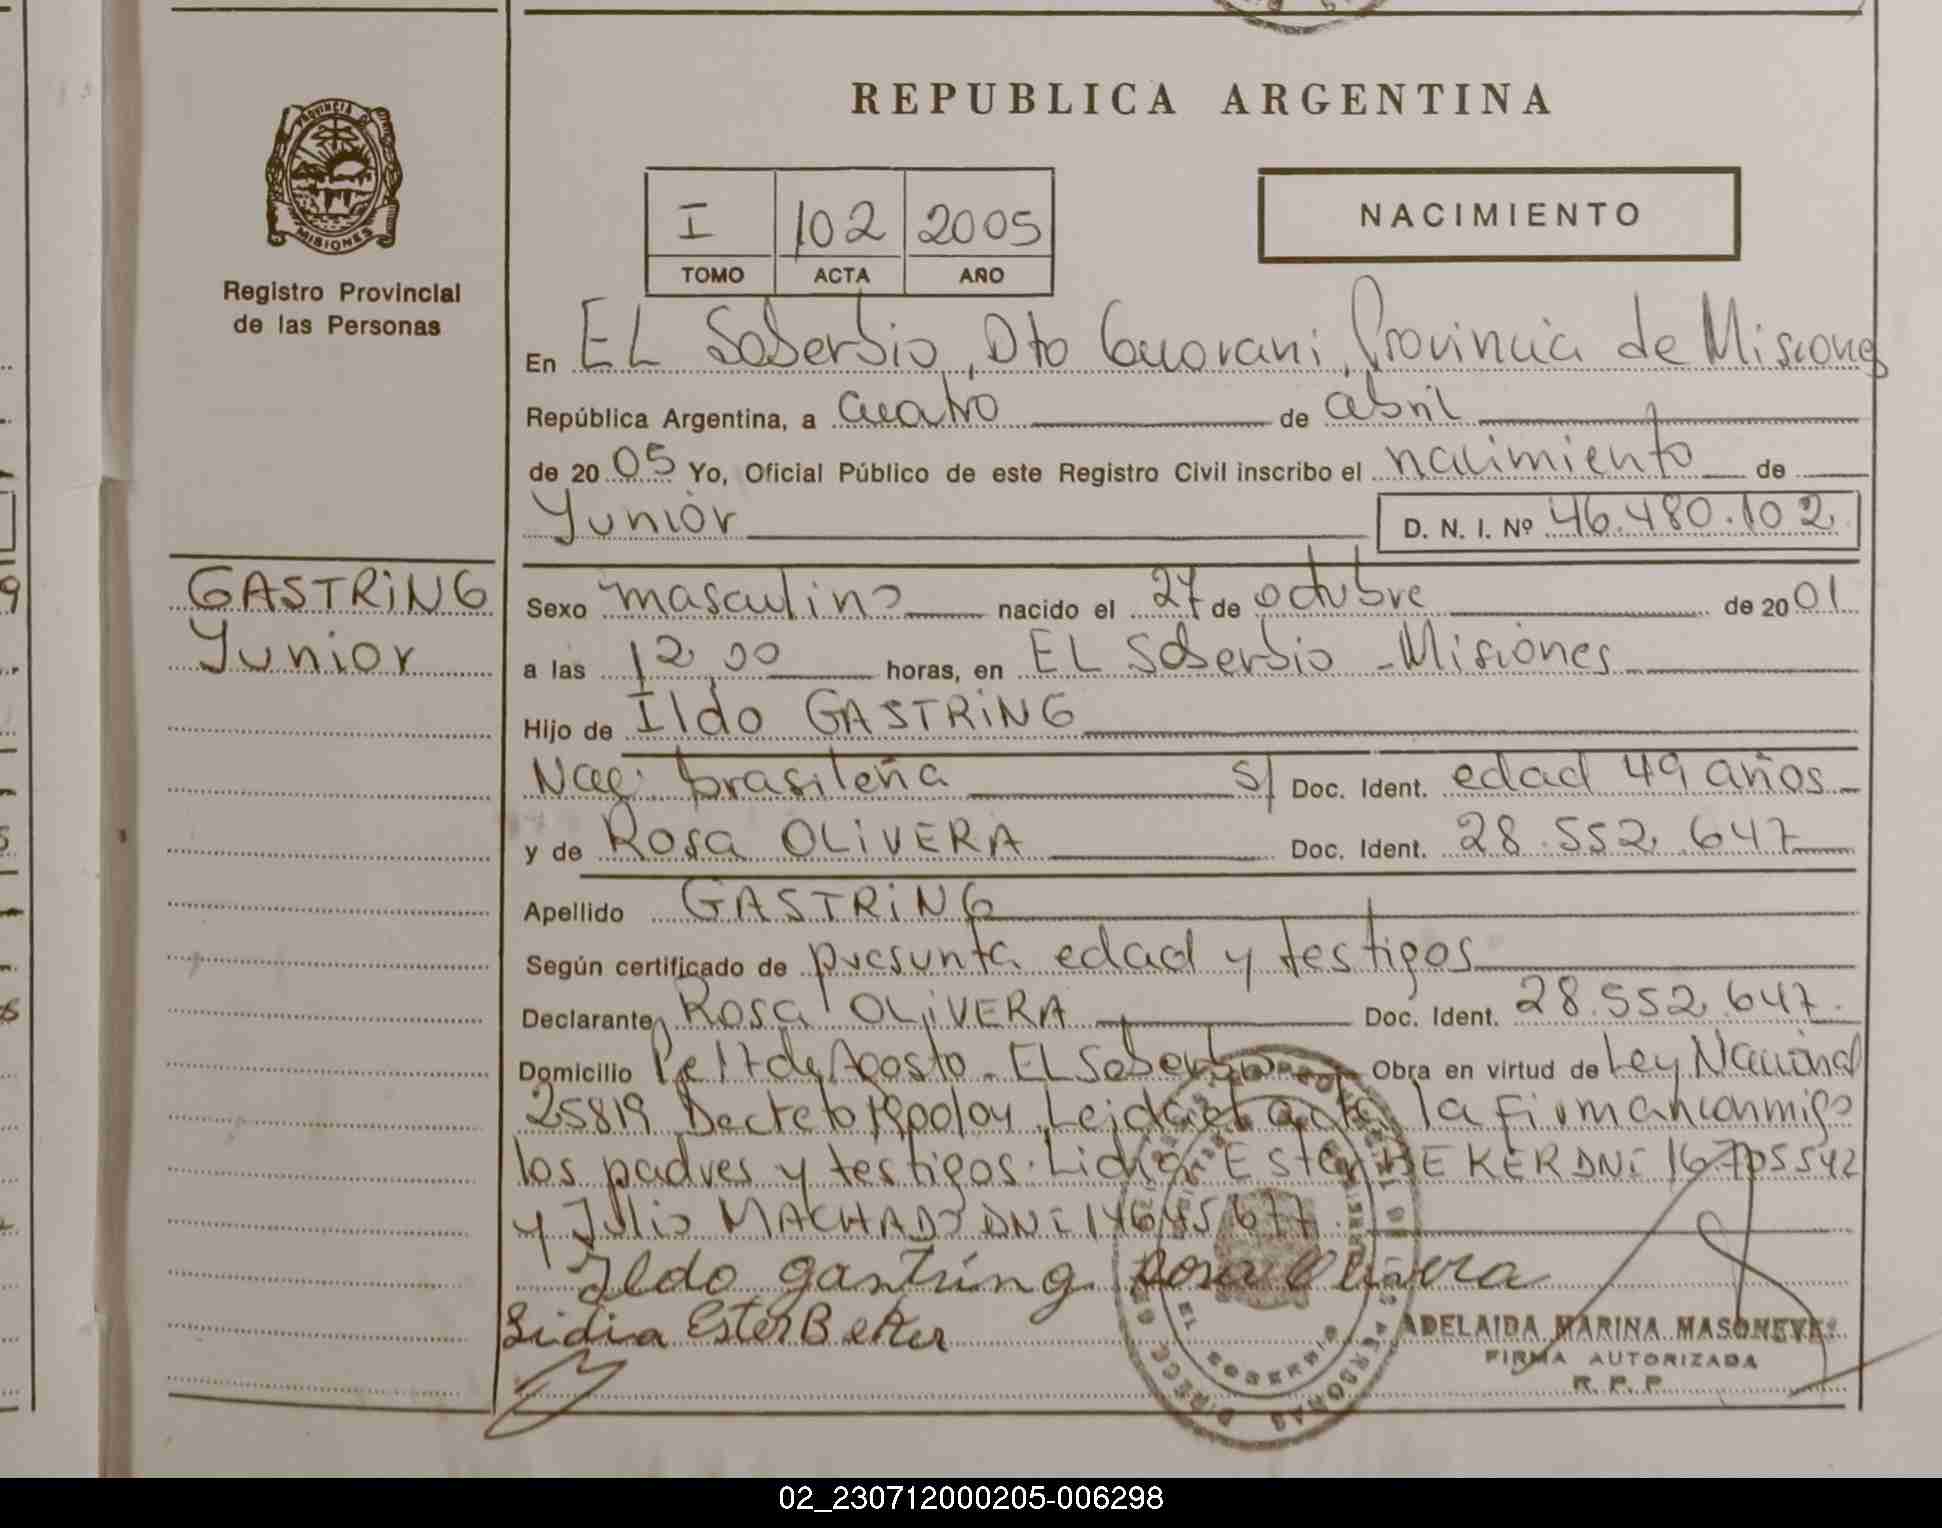 REPUBLICA ARGENTINA
PROVINCIA DE
MISIONES
Registro Provincial
de las Personas
I 102 2005
TOMO ACTA AÑO
NACIMIENTO
En EL Soberbio, Dto Guarani, Provincia de Misiones
República Argentina, a cuatro de abril
de 20 05 Yo, Oficial Público de este Registro Civil inscribo el nacimiento de
Yunior D. N. I. Nº 46.480.102.
GASTRiNG
Yunior
Sexo masculino nacido el 27 de octubre de 20 01
a las 12,00 horas, en EL Soberbio - Misiones
Hijo de Ildo GASTRiNG
Nac. brasileña S/ Doc. Ident. edad 49 años
y de Rosa OLiVERA Doc. Ident. 28.552.647
Apellido GASTRiNG
Según certificado de presunta edad y testigos
Declarante Rosa OLiVERA Doc. Ident. 28.552.647.
Domicilio 17 de Agosto - EL Soberbio Obra en virtud de Ley Nacional
25819 Decreto 1900/04 Leida el acta la firman conmigo
los padres y testigos. Lidia Ester BEKER DNi 16.705542
y Julio MACHADO DNi 14645.677.
Ildo gastring Rosa Olivera
Lidia Ester Beker
ADELAIDA MARINA
FIRMA AUTORIZADA
R. P. P.
EL SOBERBIO
PERSONAS
02_230712000205-006298